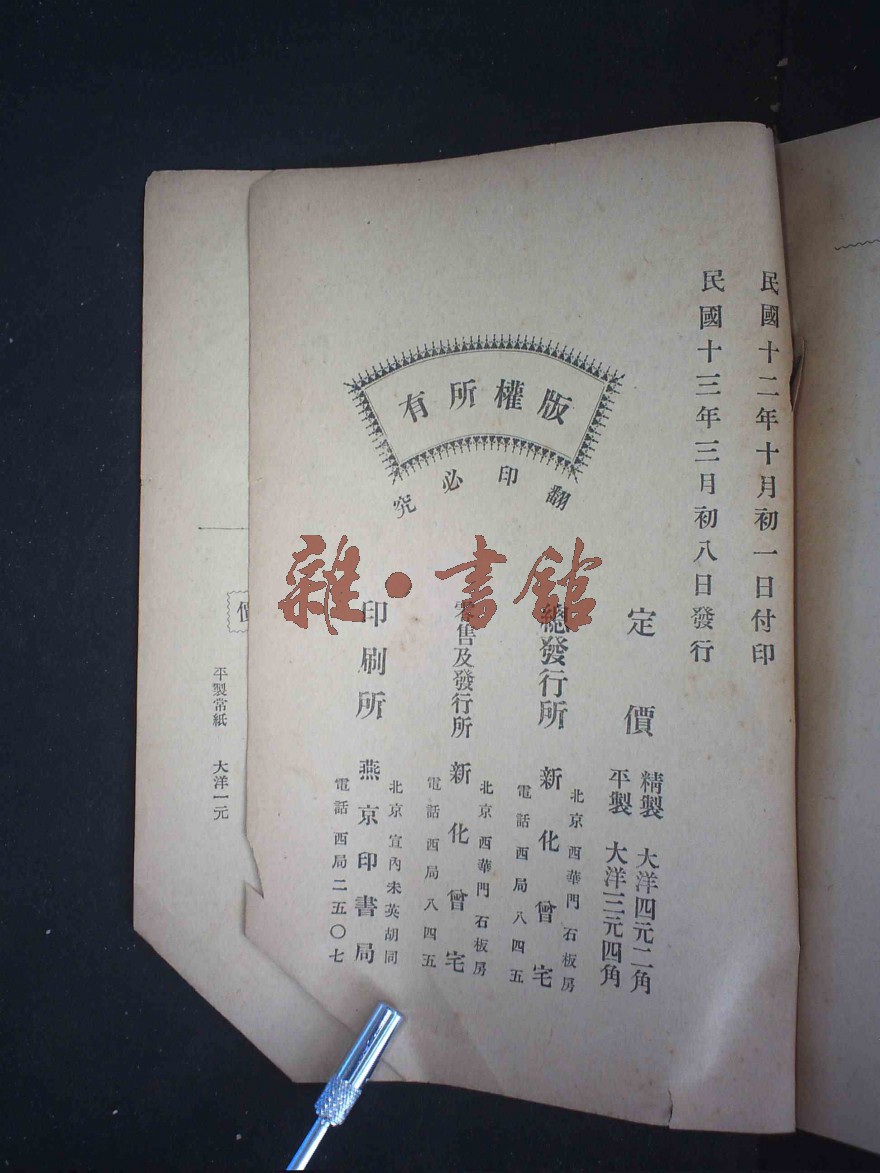 民國十二年十月初一日付印
民國十三年三月初八日發行
版權所有
翻印必究
定價
精製 大洋四元二角
平製 大洋三元四角
總發行所
北京西華門石板房
新化曾宅
電話西局八四五
零售及發行所
北京西華門石板房
新化曾宅
電話西局八四五
印刷所
北京宣內未英胡同
燕京印書局
電話西局二五〇七
雜·書館
價
平製常紙 大洋一元